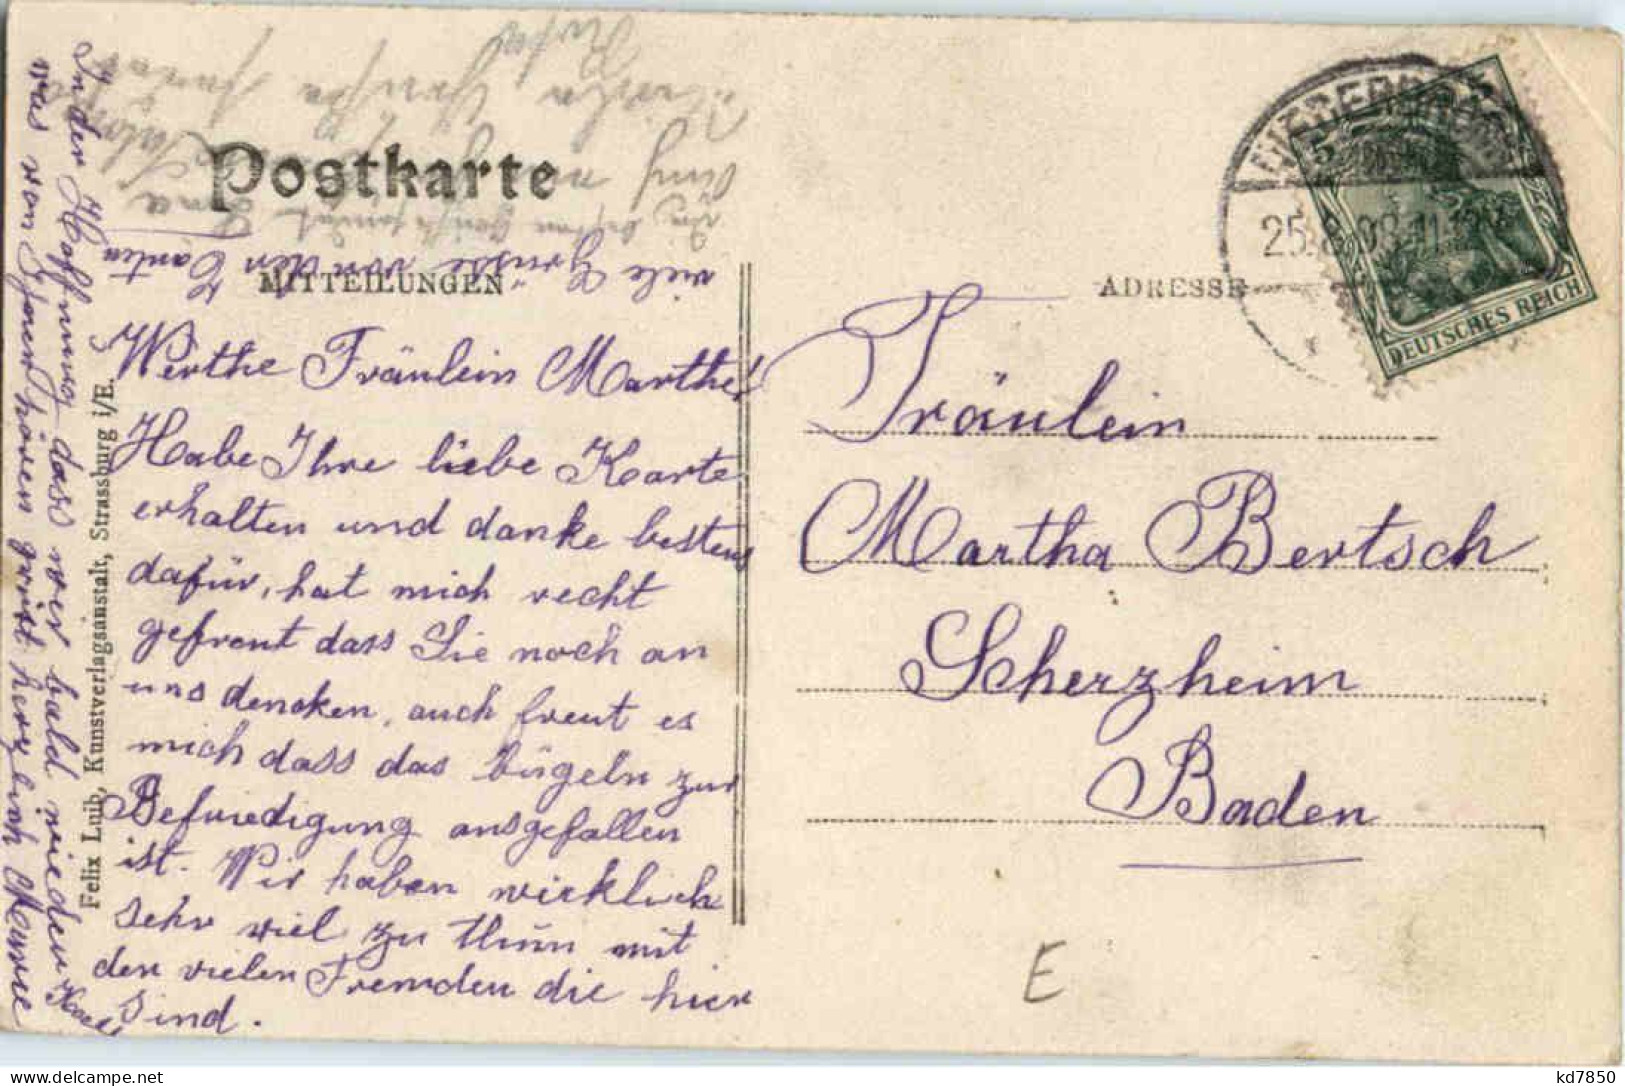 Postkarte
MITTEILUNGEN
ADRESSE
DEUTSCHES REICH
5
25.8.09.11-12
viele Grüsse von den Tanten
Werthe Fräulein Marthe!
Habe Ihre liebe Karte
erhalten und danke bestens
dafür, hat mich recht
gefreut dass Sie noch an
uns dencken, auch freut es
mich dass das bügeln zur
Befriedigung ausgefallen
ist. Wir haben wircklich
sehr viel zu thun mit
den vielen Fremden die hier
sind.
In der Hoffnung dass wir bald wieder
was von Ihnen hören grüst herzlich
Felix Luib, Kunstverlagsanstalt, Strassburg i/E.
Fräulein
Martha Bertsch
Scherzheim
Baden
E
kd7850